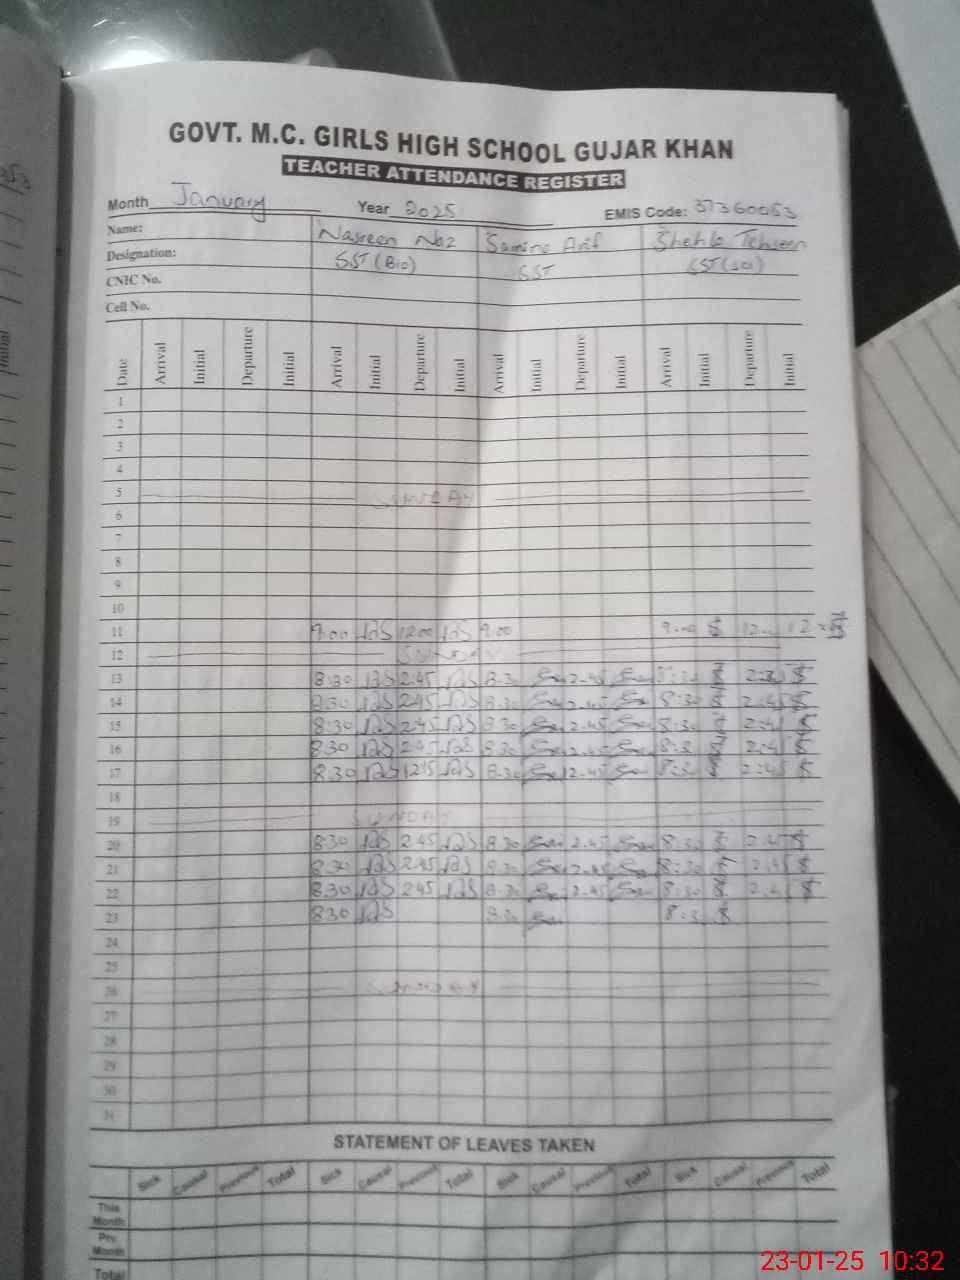 GOVT. M.C. GIRLS HIGH SCHOOL GUJAR KHAN
TEACHER ATTENDANCE REGISTER
Month January Year 2025 EMIS Code: 37360053
Name: Nasreen Naz Samina Arif Shehla Tehseen
Designation: SST (Bio) SST SST (sci)
CNIC No.
Cell No.
Date Arrival Initial Departure Initial Arrival Initial Departure Initial Arrival Initial Departure Initial Arrival Initial Departure Initial
1
2
3
4
5 SUNDAY
6
7
8
9
10
11 9:00 12:00 9:00 9:00 12
12 SUNDAY
13 8:30 2:45 8:30 2:45 8:30 2:45
14 8:30 2:45 8:30 2:45 8:30 2:45
15 8:30 2:45 8:30 2:45 8:30 2:45
16 8:30 2:45 8:30 2:45 8:30 2:45
17 8:30 12:15 8:30 2:45 8:30 2:45
18
19 SUNDAY
20 8:30 2:45 8:30 2:45 8:30 2:45
21 8:30 2:45 8:30 2:45 8:30 2:45
22 8:30 2:45 8:30 2:45 8:30 2:45
23 8:30 8:30 8:30
24
25
26 SUNDAY
27
28
29
30
31
STATEMENT OF LEAVES TAKEN
Sick Causal Previous Total Sick Causal Previous Total Sick Causal Previous Total Sick Causal Previous Total
This Month
Prv. Month
Total
23-01-25 10:32